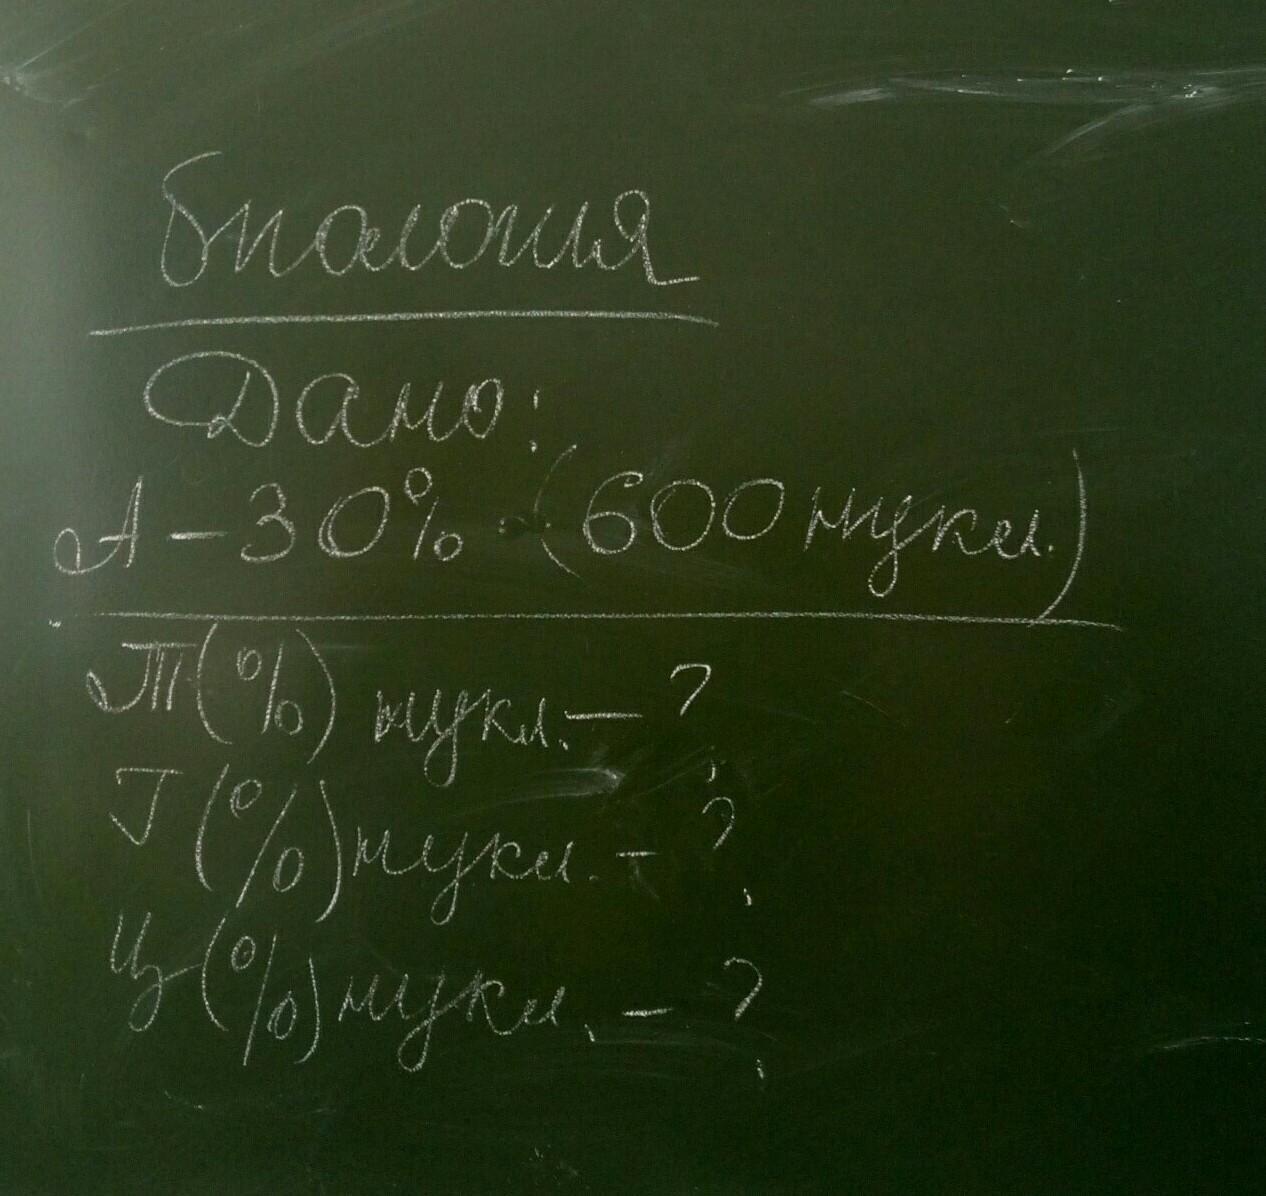 биология
Дано:
А – 30% (600 нукл.)
Т (%) нукл. – ?
Г (%) нукл. – ?
Ц (%) нукл. – ?